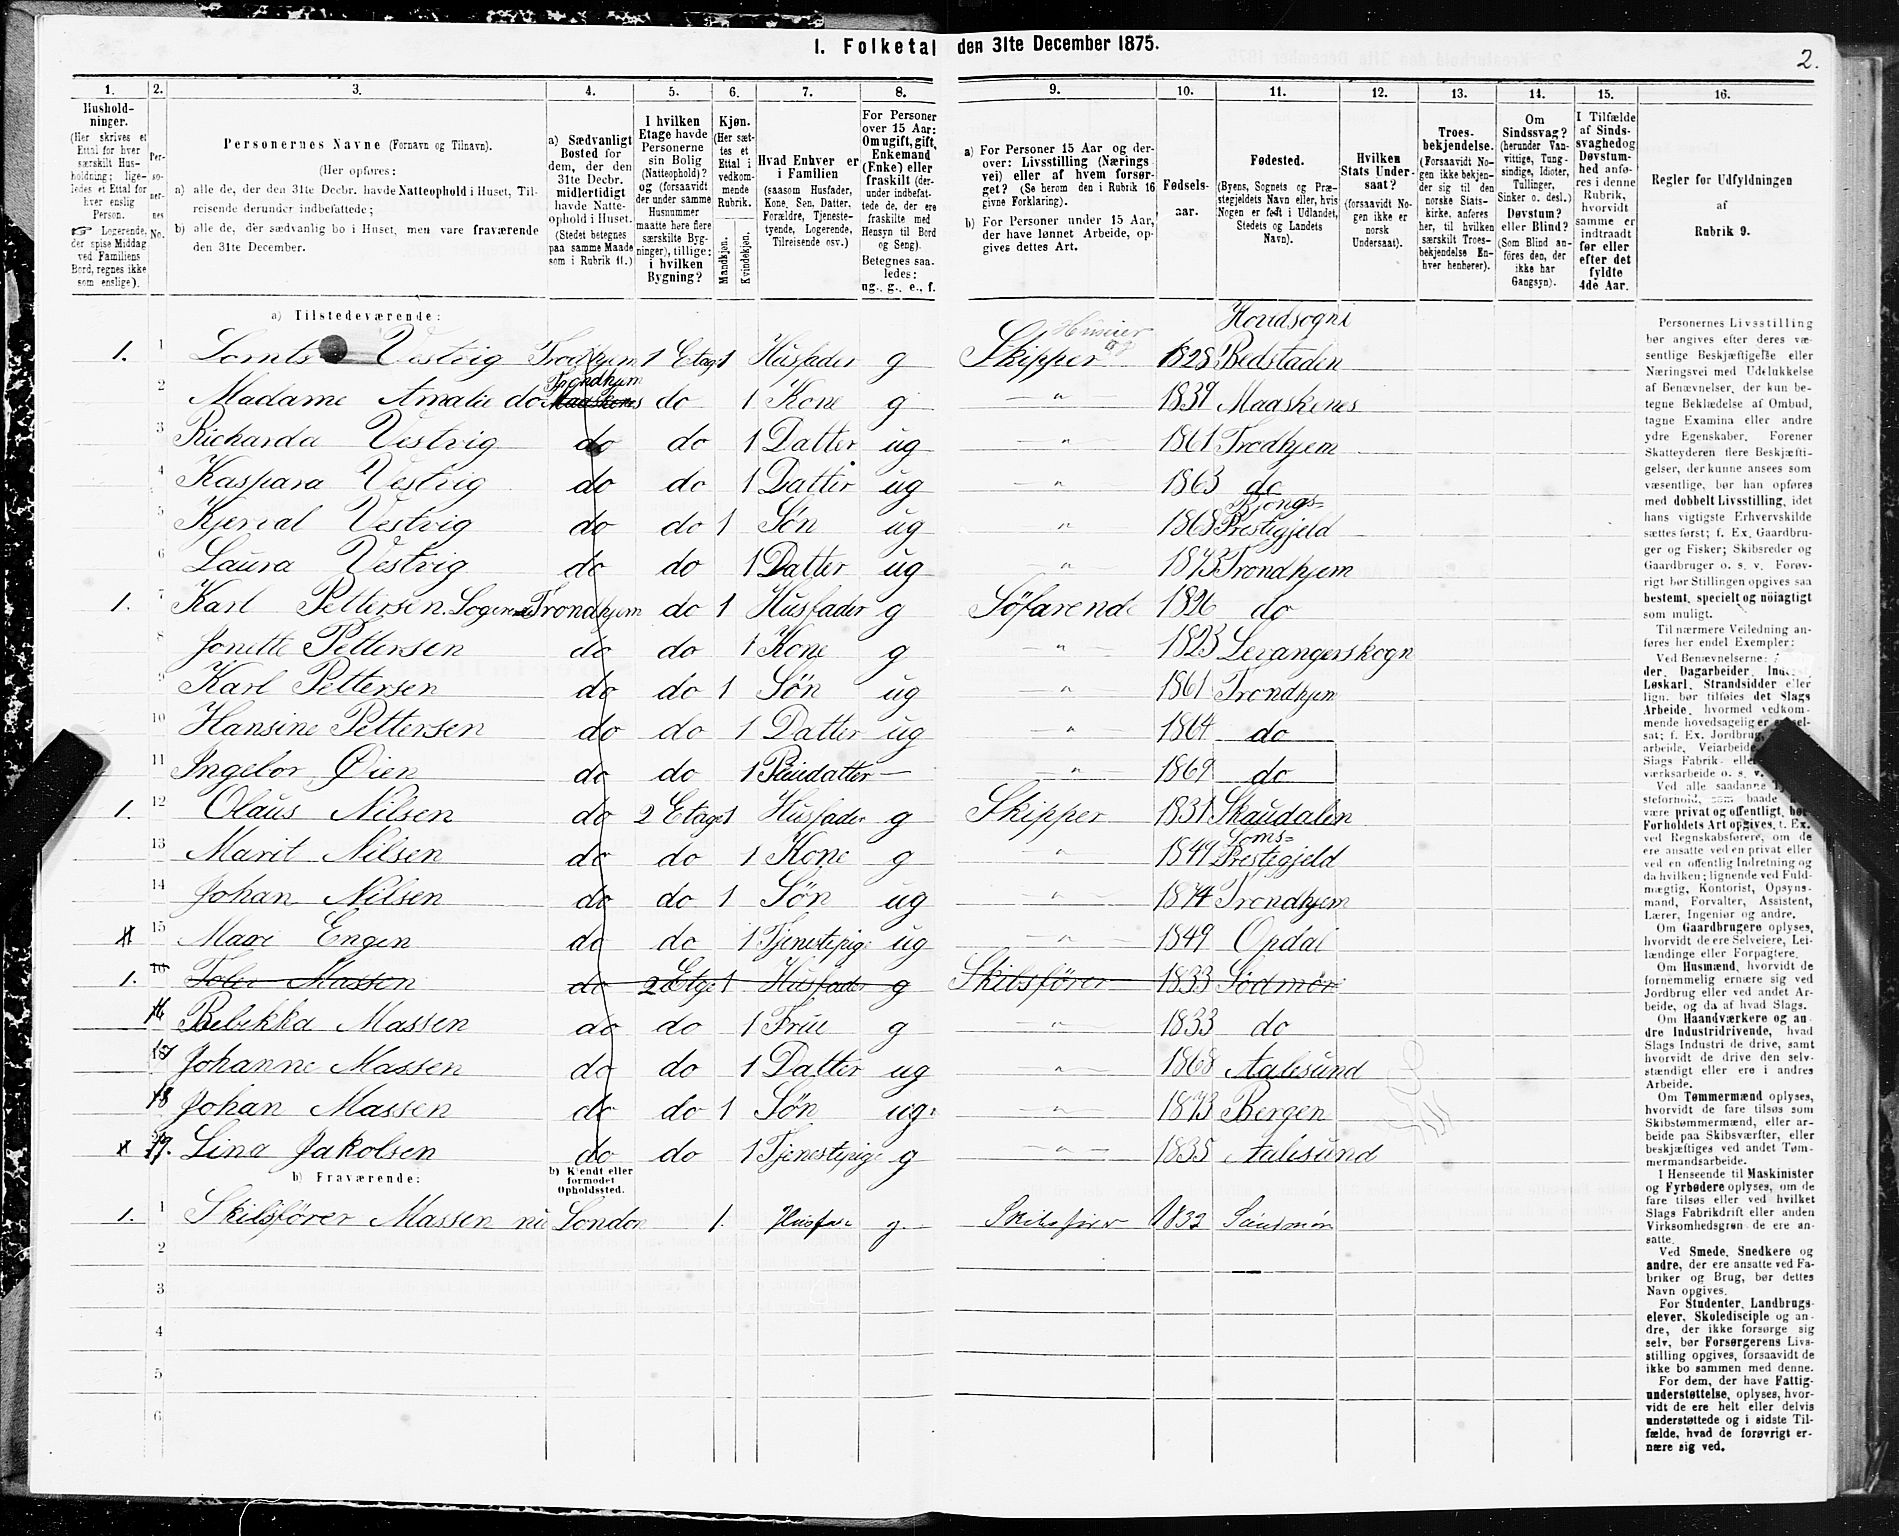 1. Folketal den 31te December 1875.
2.
1. 2. 3. 4. 5. 6. 7. 8. 9. 10. 11. 12. 13. 14. 15. 16.
Hushold-
ninger.
(Her skrives et
Ettal for hver
særskilt Hus-
holdning; lige-
ledes et Ettal for
hver enslig
Person.
☞ Logerende,
der spise Middag
ved Familiens
Bord, regnes ikke
som enslige).
Per-
so-
ner-
nes
No.
Personernes Navne (Fornavn og Tilnavn).
(Her opføres:
a) alle de, der den 31te Decbr. havde Natteophold i Huset, Til-
reisende derunder indbefattede;
b) alle de, der sædvanlig bo i Huset, men vare fraværende
den 31te December.
a) Sædvanligt
Bosted for
dem, der den
31te Decbr.
midlertidigt
havde Natte-
ophold i Huset.
(Stedet betegnes
paa samme Maade
som i Rubrik 11.)
I hvilken
Etage havde
Personerne
sin Bolig
(Natteophold)?
og (forsaavidt
der under samme
Husnummer
maatte høre flere
særskilte Byg-
ninger), tillige:
i hvilken
Bygning?
Kjøn.
(Her sæt-
tes et
Ettal i
vedkom-
mende
Rubrik.
Mandkjøn.
Kvindekjøn.
Hvad Enhver er
i Familien
(saasom Husfader,
Kone, Søn, Datter,
Forældre, Tjeneste-
tyende, Logerende,
Tilreisende osv.)
For Personer
over 15 Aar:
Om ugift, gift,
Enkemand
(Enke) eller
fraskilt (der-
under indbefat-
tede de, der ere
fraskilte med
Hensyn til Bord
og Seng).
Betegnes saa-
ledes:
ug., g., e., f.
a) For Personer 15 Aar og der-
over: Livsstilling (Nærings
vei) eller af hvem forsør-
get? (Se herom den i Rubrik 16
givne Forklaring).
b) For Personer under 15 Aar,
der have lønnet Arbeide, op-
gives dettes Art.
Fødsels-
aar.
Fødested.
(Byens, Sognets og Præ-
stegjeldets Navn eller, hvis
Nogen er født i Udlandet,
Stedets og Landets
Navn).
Hvilken
Stats Under-
saat?
(forsaavidt No-
gen ikke er
norsk
Undersaat).
Troes-
bekjendelse.
(Forsaavidt No-
gen ikke bekjen-
der sig til den
norske Stats-
kirke, anføres
her, til hvilken
særskilt Troes-
bekjendelse En-
hver henhører).
Om
Sindssvag?
(herunder Van-
vittige, Tung-
sindige, Idioter,
Tullinger,
Sinker o. desl.)
Døvstum?
eller Blind?
(Som Blind an-
føres den, der
ikke har
Gangsyn).
I Tilfælde
af Sinds-
svaghed og
Døvstum-
hed anfø-
res i denne
Rubrik,
hvorvidt
samme er
indtraadt
før eller
efter det
fyldte
4de Aar.
Regler for Udfyldningen
af
Rubrik 9.
a) Tilstedeværende:
Hovdsogn
1. 1 Lornts Vestvig Trondhjem 1 Etage 1 Husfader g Skipper 1828
2 Madame Amalie do Trondhjem do 1 Kone g " 1839 Maaskenes
3 Richarda Vestvig do do 1 Datter ug " 1861 Trodhjem
4 Kaspara Vestvig do do 1 Datter ug " 1863 do
5 Vestvig do do 1 Søn ug " 1868 Prestegjeld
6 Laura Vestvig do do 1 Datter ug " 1873 Trondhjem
1. 7 Karl Pettersen Trondhjem do 1 Husfader g Søfarende 1826 do
8 Jonette Pettersen do do 1 Kone g " 1823 Levangerskogn
9 Karl Pettersen do do 1 Søn ug " 1861 Trondhjem
10 Hansine Pettersen do do 1 Datter ug " 1864 do
11 Ingebor Øien do do 1 Pleiedatter — " 1869 do
1. 12 Olaus Nilsen do 2 Etage 1 Husfader g Skipper 1831 Skaudalen
13 Marit Nilsen do do 1 Kone g " 1849 Prestegjeld
14 Johan Nilsen do do 1 Søn ug " 1874 Trondhjem
15 Mari Engen do do 1 Tjenestepige ug " 1849 Opdal
1. 16 Massen do 2 Etge 1 Husfader g Skibsfører 1833 Södmör
16 Bebekka Massen do do 1 Frue g " 1833 do
17 Johanne Massen do do 1 Datter ug " 1868 Aalesund
18 Johan Massen do do 1 Søn ug " 1873 Bergen
19. Lina Jakobsen do do 1 Tjenestepige g " 1835 Aalesund
b) Fraværende:
b) Kjendt eller
formodet
Opholdssted.
1. 1 Skibsfører Massen nu London 1. Husfa g Skibsfører 1832 Søndmør
2
3
4
5
6
Personernes Livsstilling
bør angives efter deres væ-
sentlige Beskjæftigelse eller
Næringsvei med Udelukkelse
af Benævnelser, der kun be-
tegne Beklædelse af Ombud,
tagne Examina eller andre
ydre Egenskaber. Forener
Skatteyderen flere Beskjæfti-
gelser, der kunne ansees som
væsentlige, bør han opføres
med dobbelt Livsstilling, idet
hans vigtigste Erhvervskilde
sættes først; f. Ex. Gaardbru-
ger og Fisker; Skibsreder og
Gaardbruger o. s. v. Forøv-
rigt bør Stillingen opgives saa
bestemt, specielt og nöiagtigt
som muligt.
Til nærmere Veiledning an-
føres her endel Exempler:
Ved Benævnelserne:
der, Dagarbeider,
Løskarl, Strandsidder eller
lign. bør tilføies det Slags
Arbeide, hvormed vedkom-
mende hovedsagelig er
sat; f. Ex. Jordbrug,
arbeide, Veiarbeide
Slags Fabrik- eller
værksarbeide o. s. v.
Ved alle saadanne
steforhold, som baade
være privat og offentligt, bør
Forholdets Art opgives, t. Ex.
ved Regnskabsførere, om de
ere ansatte ved en privat eller
ved en offentlig Indretning og
da hvilken; lignende ved Fuld-
mægtig, Kontorist, Opsyns-
mand, Forvalter, Assistent,
Lærer, Ingeniør og andre.
Om Gaardbrugere oplyses,
hvorvidt de ere Selveiere, Lei-
lændinge eller Forpagtere.
Om Husmænd, hvorvidt de
fornemmelig ernære sig ved
Jordbrug eller ved andet Ar-
beide, og da af hvad Slags.
Om Haandværkere og an-
dre Industridrivende, hvad
Slags Industri de drive, samt
hvorvidt de drive den selv-
stændigt eller ere i andres
Arbeide.
Om Tømmermænd oplyses,
hvorvidt de fare tilsøs som
Skibstømmermænd, eller ar-
beide paa Skibsværfter, eller
beskjæftiges ved andet Tøm-
mermandsarbeide.
I Henseende til Maskinister
og Fyrbødere oplyses, om de
fare tilsøs eller ved hvilket
Slags Fabrikdrift eller anden
Virksomhedsgren de ere an-
satte.
Ved Smede, Snedkere og
andre, der ere ansatte ved Fa-
briker og Brug, bør dettes
Navn opgives.
For Studenter, Landbrugs-
elever, Skoledisciple og an-
dre, der ikke forsørge sig
selv, bør Forsørgerens Livs-
stilling opgives, forsaavidt de
ikke bo sammen med denne.
For dem, der have Fattig-
understøttelse, oplyses, hvor-
vidt de ere helt eller delvis
understøttede og i sidste Til-
fælde, hvad de forøvrigt er-
nære sig ved.